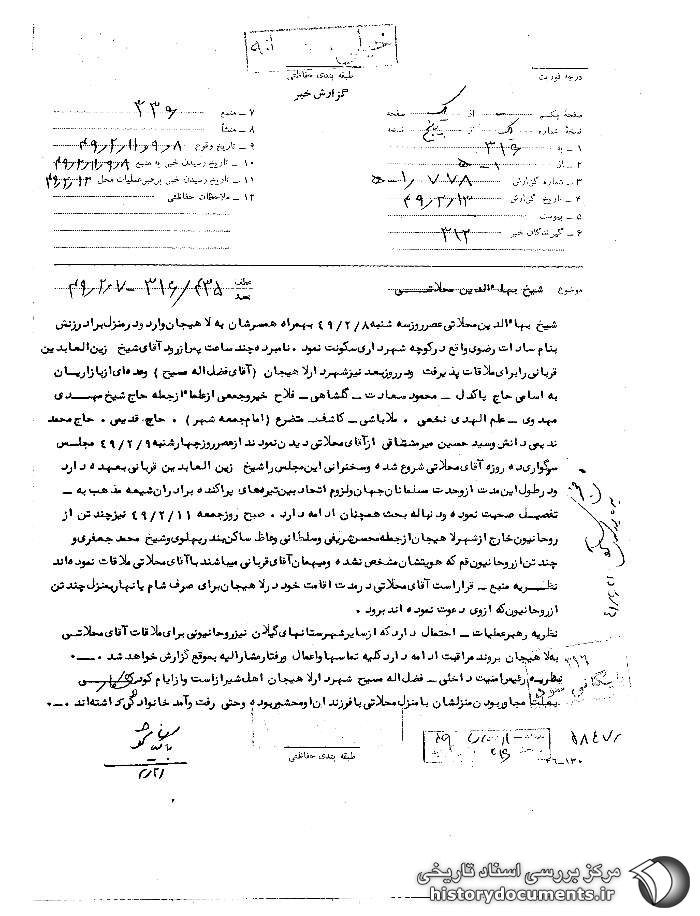 خیلی
طبقه بندی حفاظتی
گزارش خبر
درجه فوریت
صفحه یکم از یک صفحه
نسخه شماره یک از پنج نسخه
۱ ـ به ۳۱۶
۲ ـ از ۱ ه
۳ ـ شماره گزارش ۷۷۸ / ۱ ه
۴ ـ تاریخ گزارش ۴۹/۲/۱۳
۵ ـ پیوست
۶ ـ گیرندگان خبر ۳۱۲
۷ ـ منبع ۳۳۶
۸ ـ منشأ
۹ ـ تاریخ وقوع ۴۹/۲/۱۱،۹،۸
۱۰ ـ تاریخ رسیدن خبر به منبع ۴۹/۲/۱۱،۹،۸
۱۱ ـ تاریخ رسیدن خبر برهبر عملیات محل ۴۹/۲/۱۳
۱۲ ـ ملاحظات حفاظتی
موضوع شیخ بهاءالدین محلاتی
عطف به ۳۱۶/۴۳۵ - ۴۹/۲/۷
شیخ بهاءالدین محلاتی عصر روز سه شنبه ۴۹/۲/۸ بهمراه همسرشان به لاهیجان وارد و در منزل برادر زنش
بنام سادات رضوی واقع در کوچه شهرداری سکونت نمود ۰ نامبرده چند ساعت پس از ورود آقای شیخ زین العابدین
قربانی را برای ملاقات پذیرفت و در روز بعد نیز شهردار لاهیجان (آقای فضل اله مسیح) و عده ای از بازاریان
به اسامی حاج پاکدل ـ محمود سعادت ـ گلشاهی ـ فلاح خیر و جمعی از علماء از جمله حاج شیخ مهدی
مهدوی ـ علم الهدی نخعی ۰ ملاباشی ـ کاشف ـ متضرع (امام جمعه شهر) ۰ حاج قدیمی ۰ حاج محمد
ندیمی دانش و سید حسین میرمشتاقی از آقای محلاتی دیدن نمودند از عصر روز چهارشنبه ۴۹/۲/۹ مجلس
سوگواری ده روزه آقای محلاتی شروع شده و سخنرانی این مجلس را شیخ زین العابدین قربانی بعهده دارد
و در طول این مدت از وحدت مسلمانان جهان و لزوم اتحاد بین تیره های پراکنده برادران شیعه مذهب به ـ
تفصیل صحبت نموده و دنباله بحث همچنان ادامه دارد ۰ صبح روز جمعه ۴۹/۲/۱۱ نیز چند تن از
روحانیون خارج از شهر لاهیجان از جمله محسن شریفی و سلطانی واعظ ساکن بندر پهلوی و شیخ محمد جعفری و
چند تن از روحانیون قم که هویتشان مشخص نشده و میهمان آقای قربانی میباشند با آقای محلاتی ملاقات نموده اند
نظریه منبع ـ قرار است آقای محلاتی در مدت اقامت خود در لاهیجان برای صرف شام یا نهار بمنزل چند تن
از روحانیون که از وی دعوت نموده اند برود ۰
نظریه رهبر عملیات ـ احتمال دارد که از سایر شهرستانهای گیلان نیز روحانیونی برای ملاقات آقای محلاتی
به لاهیجان بروند مراقبت ادامه دارد کلیه تماسها و اعمال و رفتار مشارالیه بموقع گزارش خواهد شد ۰
نظریه رئیس امنیت داخلی ـ فضل اله مسیح شهردار لاهیجان اهل شیراز است و از ایام کودکی
بعلت مجاور بودن منزلشان با منزل محلاتی با فرزندان او محشور بوده و حتی رفت و آمد خانوادگی داشته اند ۰
۳۹۶
بایگانی شود
طبقه بندی حفاظتی
۴۶ - ۱۳۰
مرکز بررسی اسناد تاریخی
historydocuments.ir